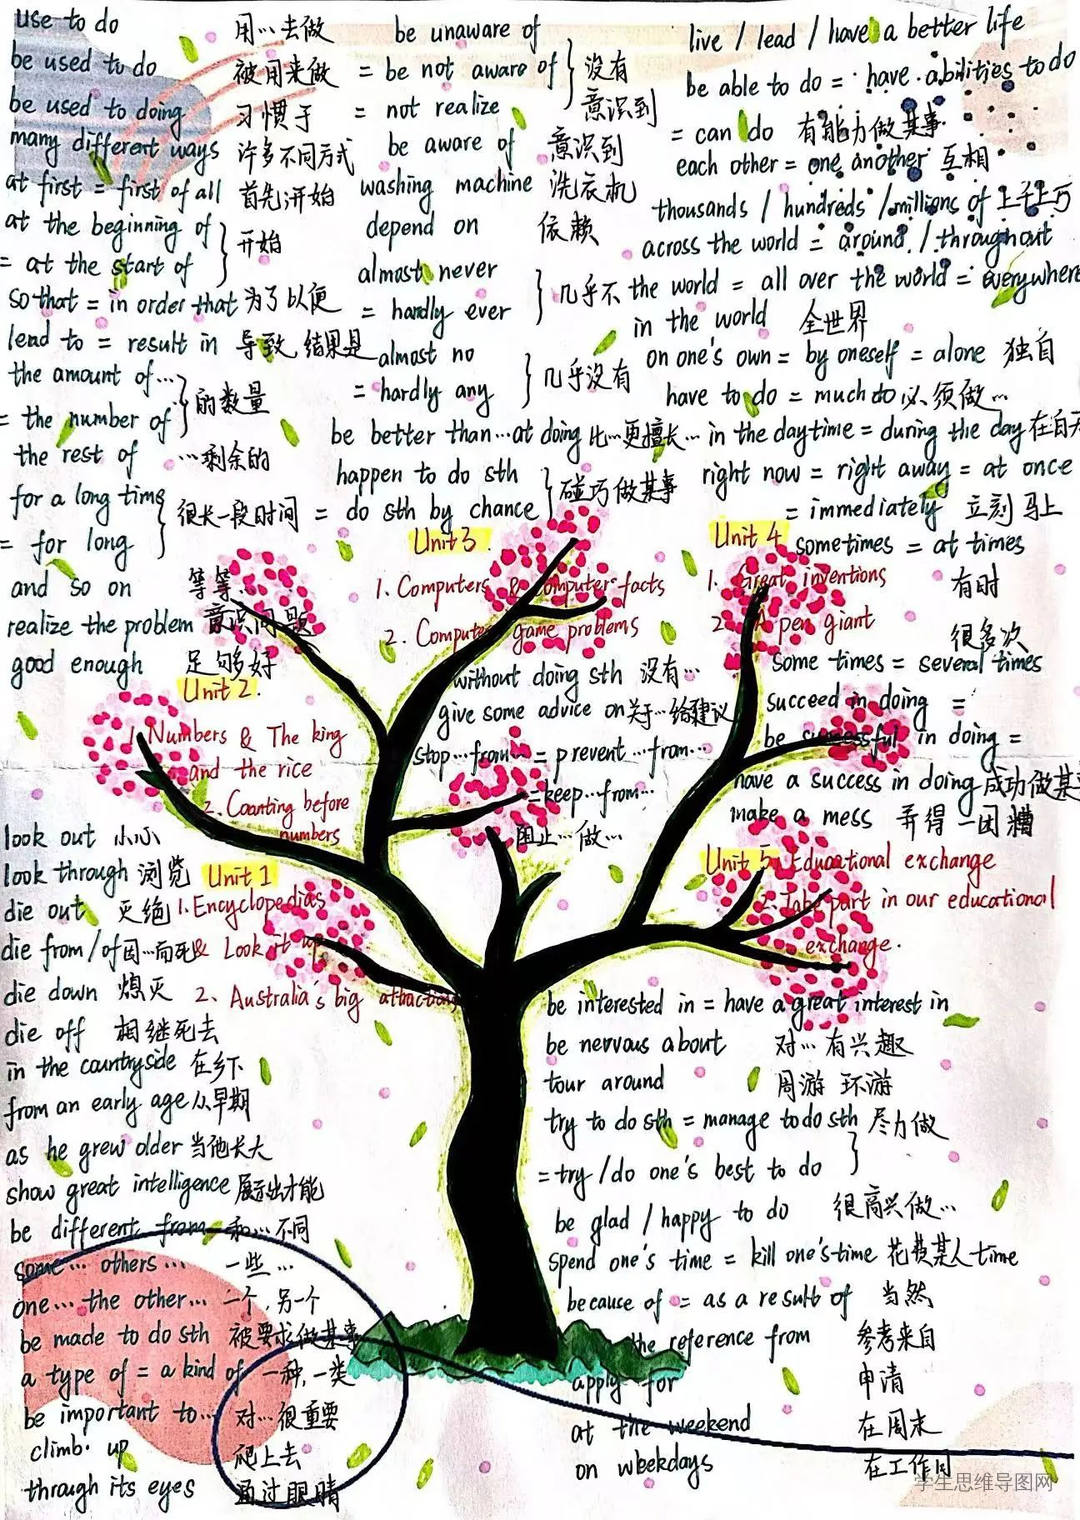 use to do 用…去做
be used to do 被用来做
be used to doing 习惯于
many different ways 许多不同方式
at first = first of all 首先开始
at the beginning of
= at the start of } 开始
so that = in order that 为了以便
lead to = result in 导致 结果是
the amount of…
= the number of } 的数量
the rest of …剩余的
for a long time
= for long } 很长一段时间
and so on 等等
realize the problem 意识问题
good enough 足够好
be unaware of
= be not aware of
= not realize } 没有意识到
be aware of 意识到
washing machine 洗衣机
depend on 依赖
almost never
= hardly ever } 几乎不
almost no
= hardly any } 几乎没有
be better than…at doing 比…更擅长…
happen to do sth
= do sth by chance } 碰巧做某事
live / lead / have a better life
be able to do = have abilities to do
= can do 有能力做某事
each other = one another 互相
thousands / hundreds / millions of 上千上万
across the world = around / throughout
the world = all over the world = everywhere
in the world 全世界
on one's own = by oneself = alone 独自
have to do = much to do 必须做…
in the daytime = during the day 在白天
right now = right away = at once
= immediately 立刻 马上
sometimes = at times
有时
很多次
some times = several times
succeed in doing =
be successful in doing =
have a success in doing 成功做某事
make a mess 弄得一团糟
Unit 3
1. Computers & computer facts
2. Computer game problems
without doing sth 没有…
give some advice on 关于…给建议
stop…from… = prevent…from…
= keep…from…
阻止…做…
Unit 4
1. Great inventions
2. A pen giant
Unit 2
1. Numbers & The king
and the rice
2. Counting before
numbers
Unit 1
1. Encyclopedias
& Look it up
2. Australia's big attractions
Unit 5 1. Educational exchange
2. Take part in our educational
exchange.
look out 小心
look through 浏览
die out 灭绝
die from / of 因…而死
die down 熄灭
die off 相继死去
in the countryside 在乡下
from an early age 从早期
as he grew older 当他长大
show great intelligence 展示出才能
be different from 和…不同
some… others… 一些…
one… the other… 一个,另一个
be made to do sth 被要求做某事
a type of = a kind of 一种,一类
be important to… 对…很重要
climb up 爬上去
through its eyes 通过眼睛
be interested in = have a great interest in
对…有兴趣
be nervous about
tour around 周游 环游
try to do sth = manage to do sth 尽力做
= try / do one's best to do }
be glad / happy to do 很高兴做…
spend one's time = kill one's time 花费某人time
because of = as a result of 当然
the reference from 参考来自
apply for 申请
at the weekend 在周末
on weekdays 在工作日
学生思维导图网